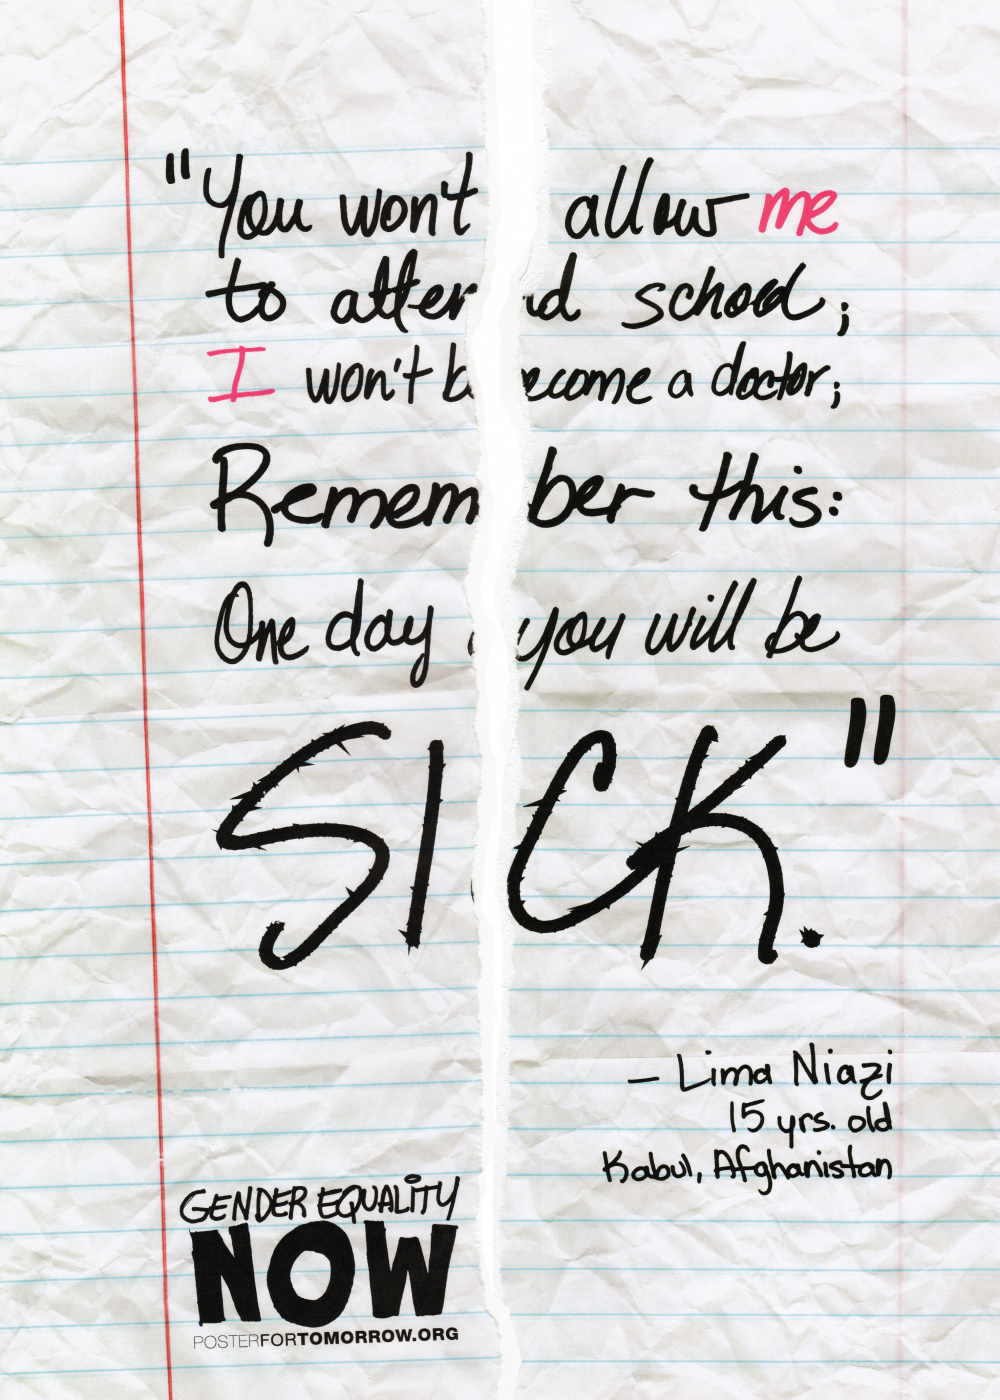 "You won't allow me
to attend school;
I won't become a doctor;
Remember this:
One day you will be
SICK."
– Lima Niazi
15 yrs. old
Kabul, Afghanistan
GENDER EQUALITY
NOW
POSTERFORTOMORROW.ORG